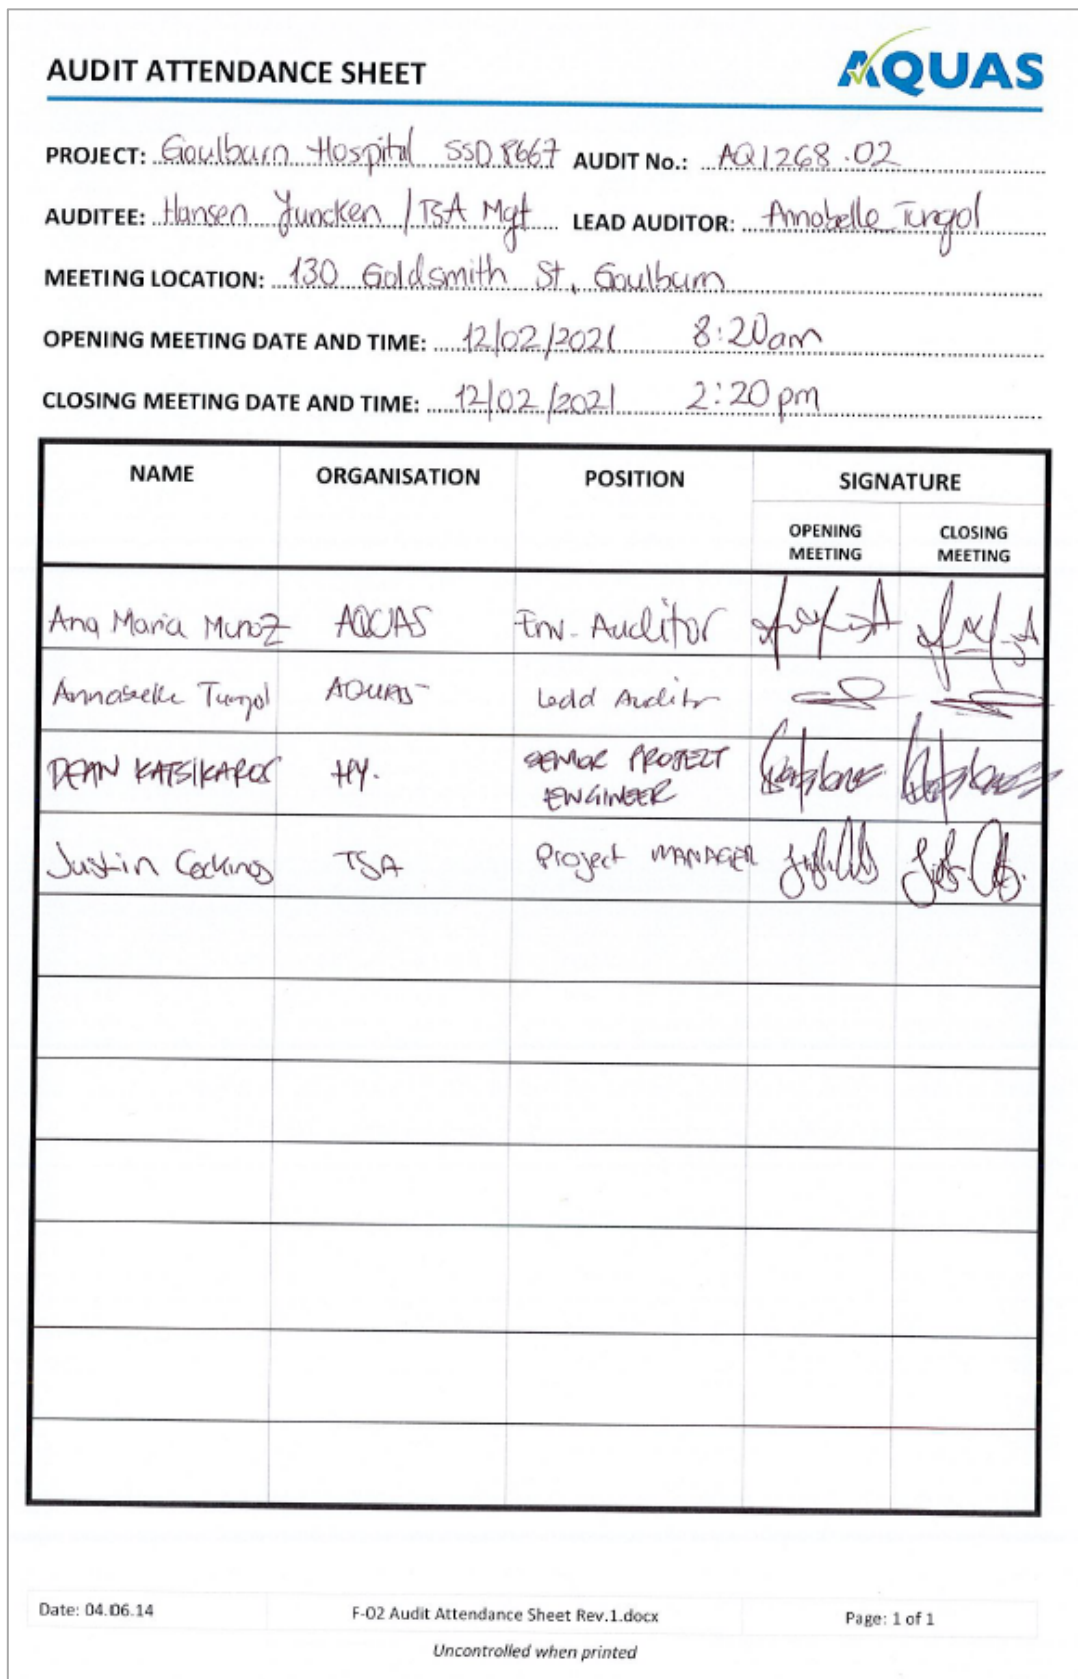 AUDIT ATTENDANCE SHEET
AQUAS
PROJECT: Goulburn Hospital SSD 8667 AUDIT No.: AQ1268.02
AUDITEE: Hansen Yuncken / TSA Mgt LEAD AUDITOR: Annabelle Tungol
MEETING LOCATION: 130 Goldsmith St, Goulburn
OPENING MEETING DATE AND TIME: 12/02/2021 8:20am
CLOSING MEETING DATE AND TIME: 12/02/2021 2:20pm
NAME ORGANISATION POSITION SIGNATURE
OPENING MEETING CLOSING MEETING
Ana Maria Munoz AQUAS Env. Auditor
Annabelle Tungol AQUAS Lead Auditor
DEAN KATSIKAROS HY. SENIOR PROJECT
ENGINEER
Justin Cockings TSA Project MANAGER
Date: 04.06.14 F-02 Audit Attendance Sheet Rev.1.docx Page: 1 of 1
Uncontrolled when printed